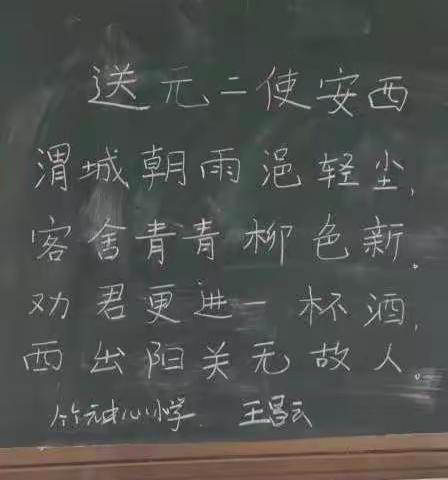 送元二使安西
渭城朝雨浥轻尘,
客舍青青柳色新。
劝君更进一杯酒,
西出阳关无故人。
竹元中心小学 王昌云